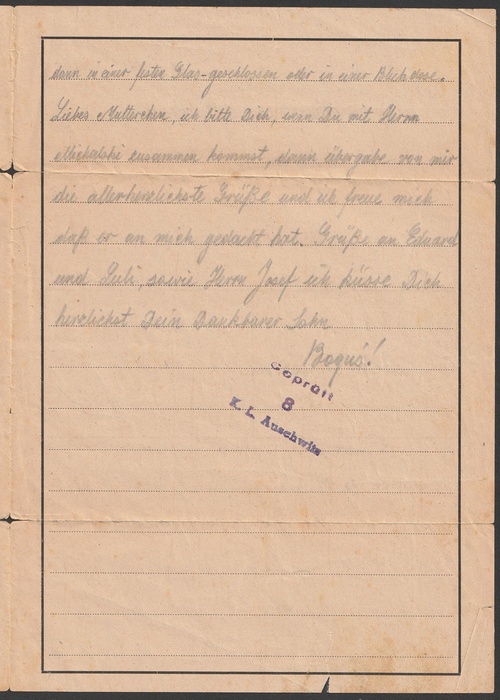 dann in einer festen Glas-geschlossen oder in einer Blechdose.
Liebes Mutterchen, ich bitte Dich, wenn Du mit Herrn
Michalski zusammen kommst, dann übergabe von mir
die allerherzlichste Grüße und ich freue mich
daß er an mich gedacht hat. Grüße an Eduard
und Luli, sowie Herrn Josef ich küsse Dich
herzlichst Dein Dankbarer Sohn
Boguś!
Geprüft
8
K. L. Auschwitz